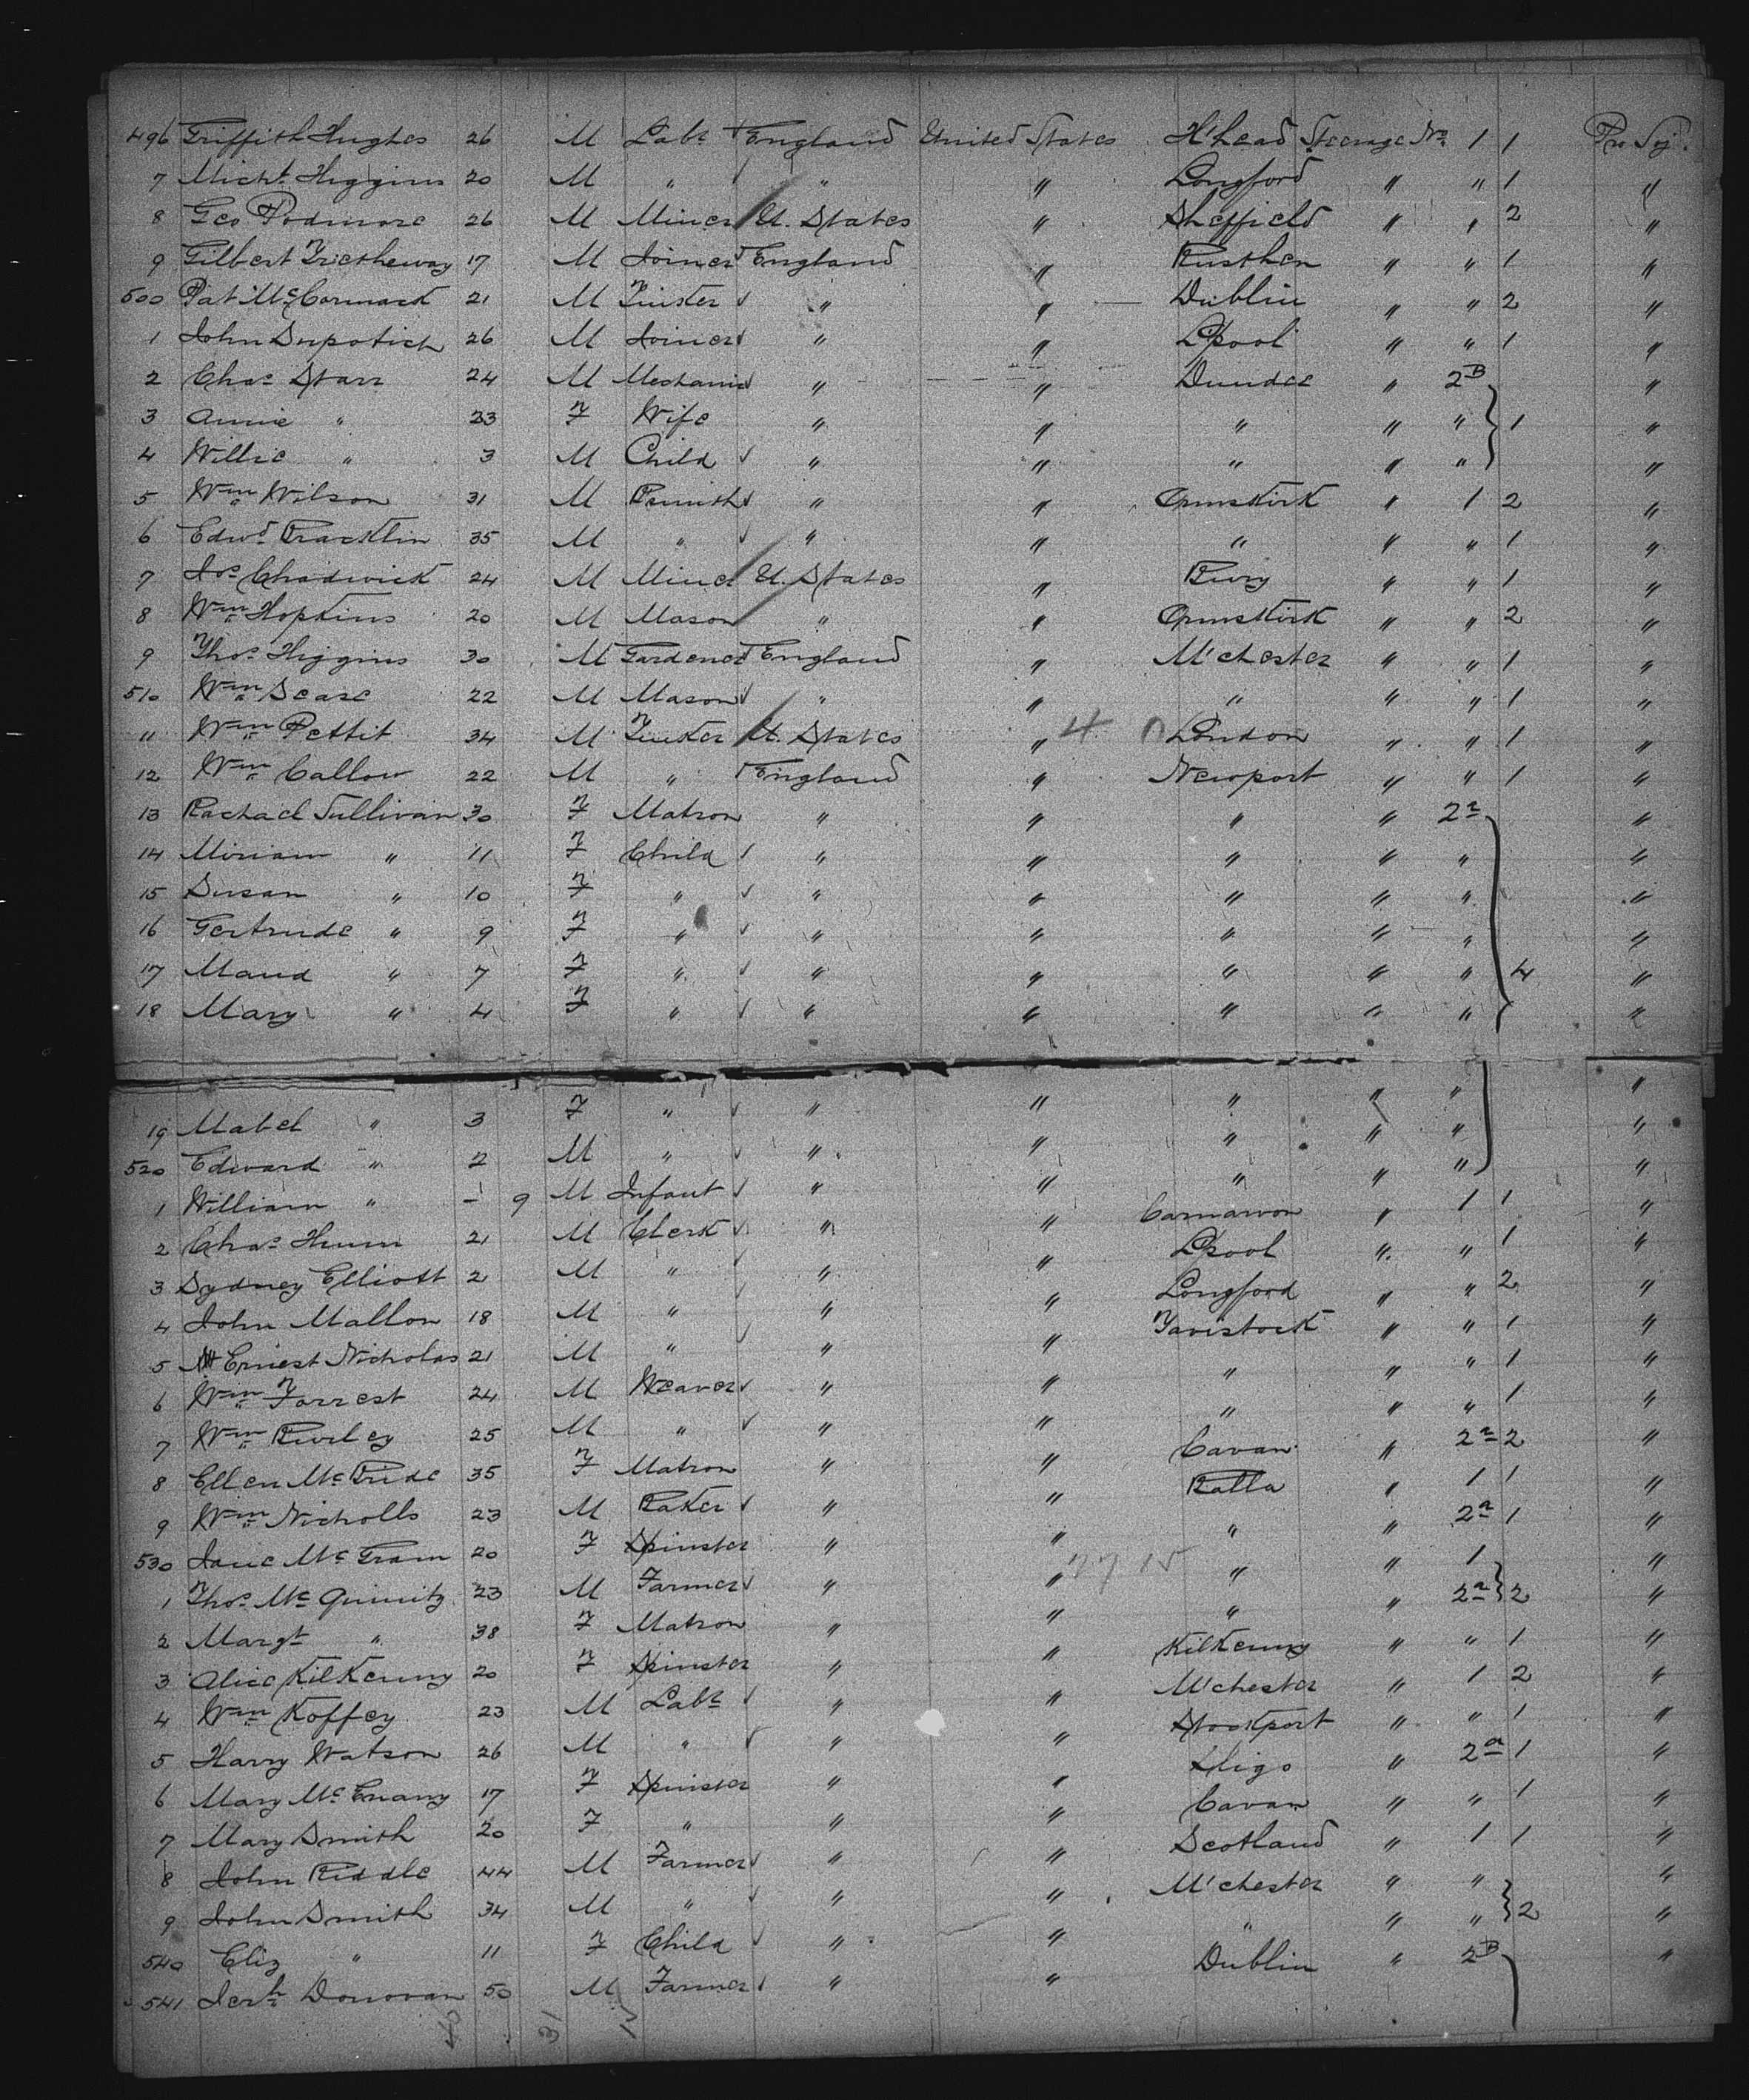 496 Griffith Hughes 26 M Labr England United States H'head Steerage No 1 1 Pro Soj.
7 Micht Higgins 20 M " " " Longford " " 1 "
8 Geo Podmore 26 M Miner U. States " Sheffield " " 2 "
9 Gilbert Tretheway 17 M Joiner England " Rusthen " " 1 "
500 Pat McCormack 21 M " " Dublin " " 2 "
1 John Supotich 26 M Joiner " " L'pool " " 1 "
2 Chas Starr 24 M Mechanic " " Dundee " 2B "
3 Annie " 23 F Wife " " " " " 1 "
4 Willie " 3 M Child " " " " " "
5 Wm Wilson 31 M Bsmith " " Ormskirk " 1 2 "
6 Edwd Bracklin 35 M " " " " " " 1 "
7 Jos Chadwick 24 M Miner U. States " Bury " " 1 "
8 Wm Hopkins 20 M Mason " " Ormskirk " " 2 "
9 Thos Higgins 30 M Gardener England " M'chester " " 1 "
510 Wm Searc 22 M Mason " " " " " 1 "
11 Wm Pettit 34 M U. States " 4 London " " 1 "
12 Wm Callow 22 M " England " Newport " " 1 "
13 Rachael Sullivan 30 F Matron " " " " 2a "
14 Miriam " 11 F Child " " " " " "
15 Susan " 10 F " " " " " " "
16 Gertrude " 9 F " " " " " " "
17 Maud " 7 F " " " " " " 4 "
18 Mary " 4 F " " " " " " "
19 Mabel " 3 F " " " " " " "
520 Edward " 2 M " " " " " " "
1 William " - 9 M Infant " " " " " "
2 Chas Hunn 21 M Clerk " " Carnarvon " 1 1 "
3 Sydney Elliott 2 M " " " L'pool " " 1 "
4 John Mallon 18 M " " " Longford " " 2 "
5 Ernest Nicholas 21 M " " " Tavistock " " 1 "
6 Wm Forrest 24 M Weaver " " " " " 1 "
7 Wm Burley 25 M " " " " " " 1 "
8 Ellen McBride 35 F Matron " " Cavan " 2a 2 "
9 Wm Nicholls 23 M Baker " " Balla " 1 1 "
530 Jane McGram 20 F Spinster " " " " 2a 1 "
1 Thos McQuinitz 23 M Farmer " " " " 1 "
2 Margt " 38 F Matron " " " " 2a 2 "
3 Alice Kilkenny 20 F Spinster " " Kilkenny " " 1 "
4 Wm Koffey 23 M Labr " " M'chester " 1 2 "
5 Harry Watson 26 M " " " Stockport " " 1 "
6 Mary McEnany 17 F Spinster " " Sligo " 2a 1 "
7 Mary Smith 20 F " " " Cavan " " 1 "
8 John Riddle 44 M Farmer " " Scotland " 1 1 "
9 John Smith 34 M " " " M'chester " " "
540 Eliz " 11 F Child " " " " " 2 "
541 Jerh Donovan 50 M Farmer " " Dublin " 2B "